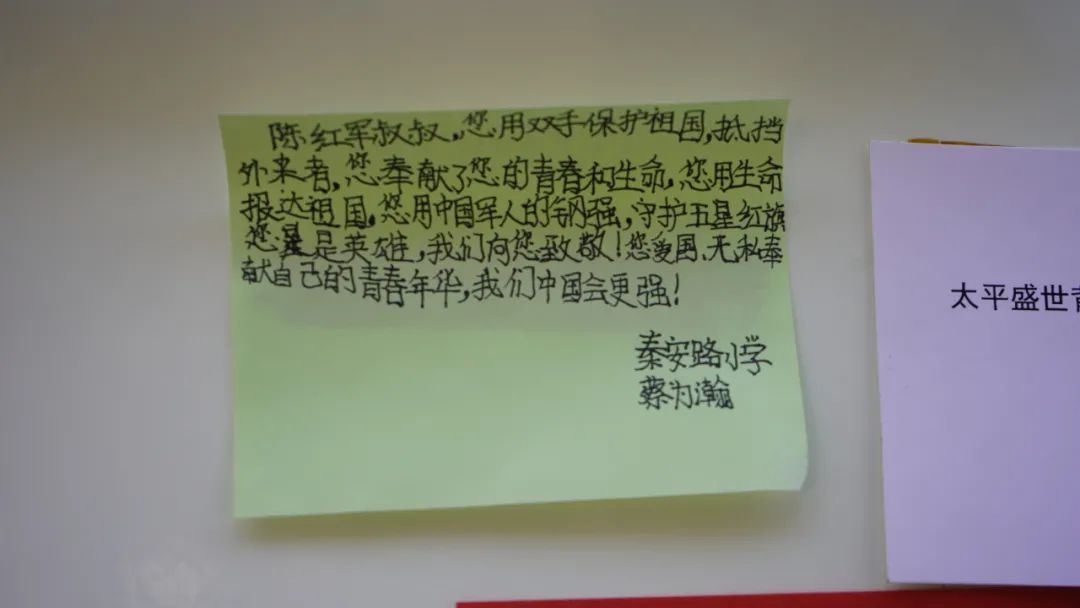 陈红军叔叔,您用双手保护祖国,抵挡
外来者,您奉献了您的青春和生命,您用生命
报达祖国,您用中国军人的钢强,守护五星红旗
您是英雄,我们向您致敬!您爱国、无私奉
献自己的青春年华,我们中国会更强!
秦安路小学
蔡为瀚
太平盛世